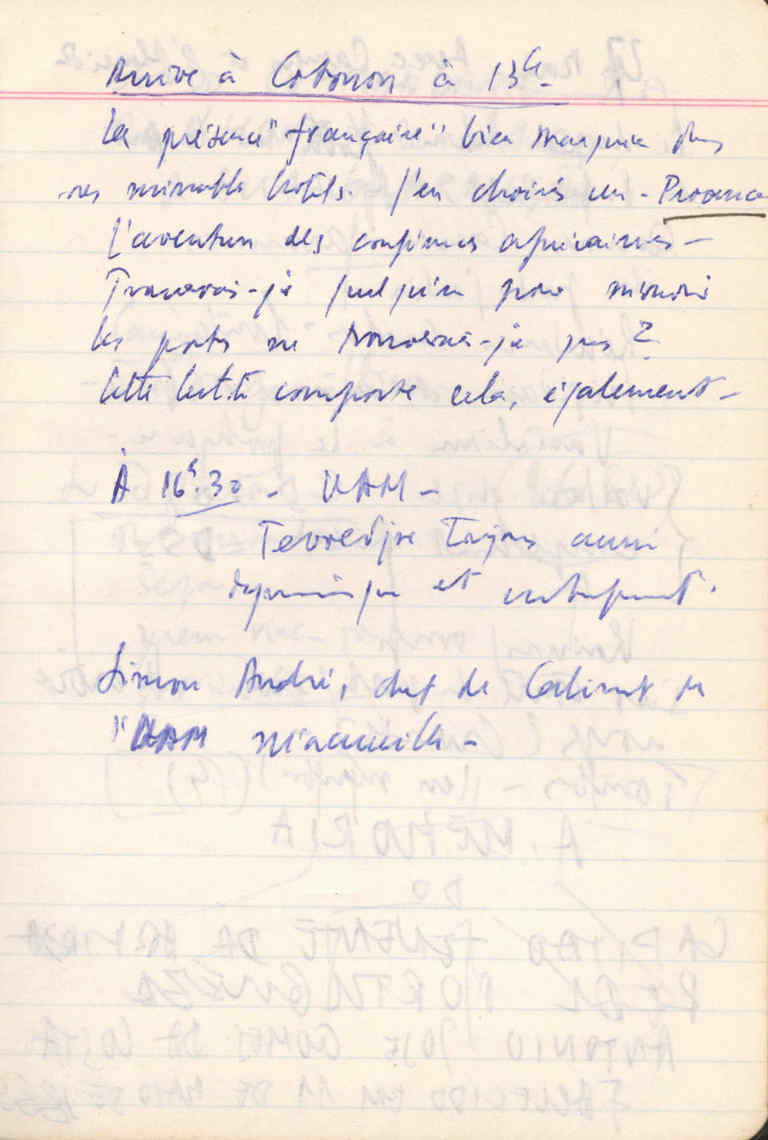 Arrive à Cotonou à 13h -
La présence "française" bien marquée dans
ces minable hôtels. J'en choisis un - Provence
L'aventure des confins africaines -
Trouverai-je quelqu'un pour m'ouvrir
les portes ne trouverai-je pas ?
Cette lutte comporte cela, également -
À 16h30 - UAM -
Tevoedjre Toujours aussi
dynamique et
Simon André, chef de Cabinet de
l'UAM m'accueille -